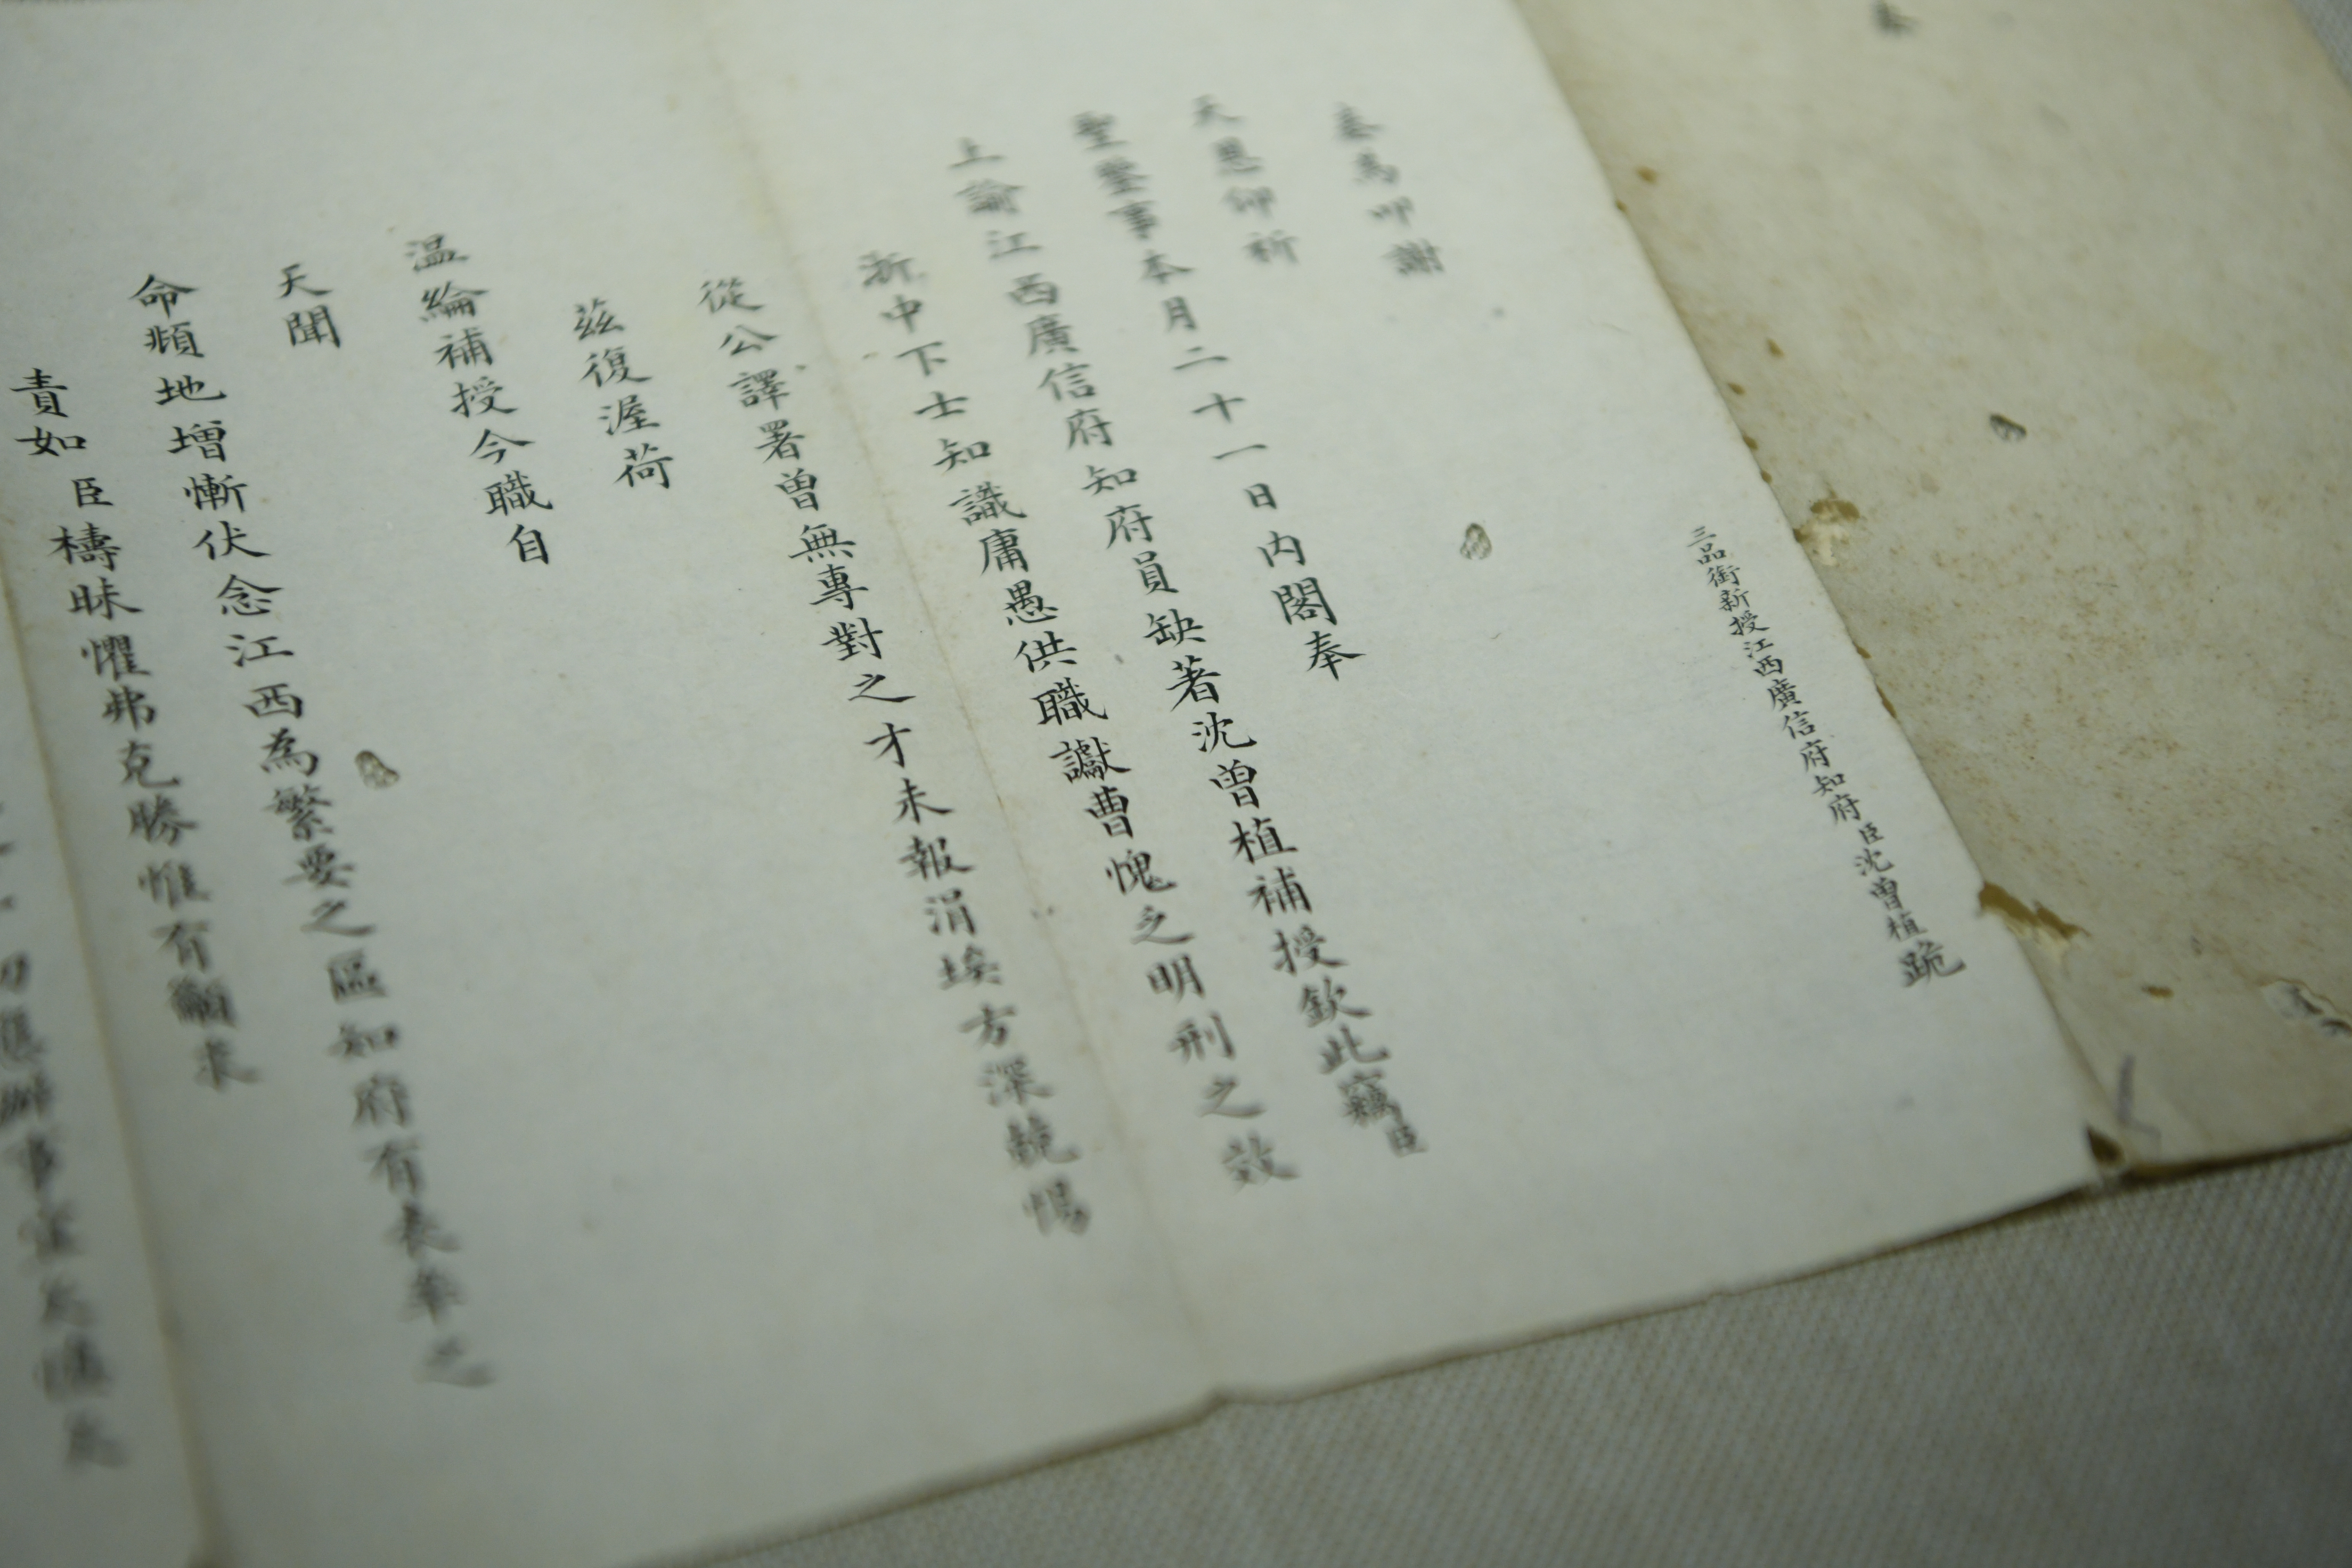 奏
三品銜新授江西廣信府知府臣沈曾植跪
奏為叩謝
天恩仰祈
聖鑒事本月二十一日內閣奉
上諭江西廣信府知府員缺著沈曾植補授欽此竊臣
浙中下士知識庸愚供職讞曹愧乏明刑之效
從公譯署曾無專對之才未報涓埃方深兢惕
茲復渥荷
温綸補授今職自
天聞
命頫地增慚伏念江西為繁要之區知府有表率之
責如臣檮昧懼弗克勝惟有籲求